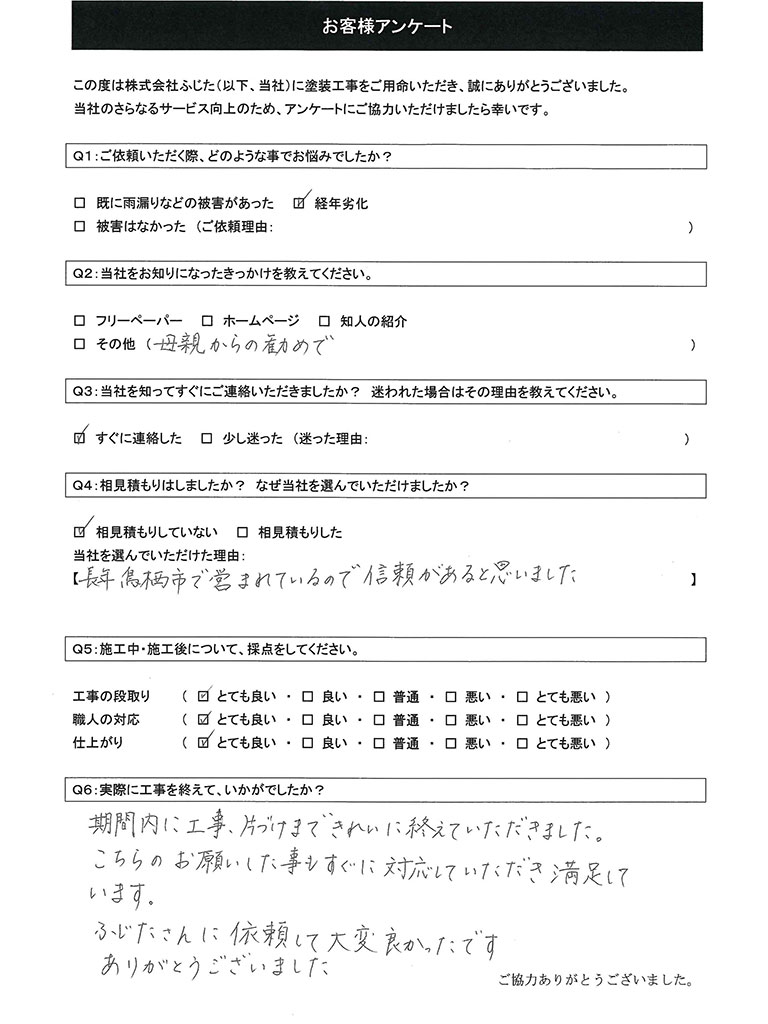 お客様アンケート
この度は株式会社ふじた(以下、当社)に塗装工事をご用命いただき、誠にありがとうございました。
当社のさらなるサービス向上のため、アンケートにご協力いただけましたら幸いです。
Q1:ご依頼いただく際、どのような事でお悩みでしたか?
□ 既に雨漏りなどの被害があった ☑ 経年劣化
□ 被害はなかった (ご依頼理由: )
Q2:当社をお知りになったきっかけを教えてください。
□ フリーペーパー □ ホームページ □ 知人の紹介
□ その他 (母親からの勧めで )
Q3:当社を知ってすぐにご連絡いただきましたか? 迷われた場合はその理由を教えてください。
☑ すぐに連絡した □ 少し迷った (迷った理由: )
Q4:相見積もりはしましたか? なぜ当社を選んでいただけましたか?
☑ 相見積もりしていない □ 相見積もりした
当社を選んでいただけた理由:
【長年鳥栖市で営まれているので信頼があると思いました 】
Q5:施工中・施工後について、採点をしてください。
工事の段取り ( ☑ とても良い ・ □ 良い ・ □ 普通 ・ □ 悪い ・ □ とても悪い )
職人の対応 ( ☑ とても良い ・ □ 良い ・ □ 普通 ・ □ 悪い ・ □ とても悪い )
仕上がり ( ☑ とても良い ・ □ 良い ・ □ 普通 ・ □ 悪い ・ □ とても悪い )
Q6:実際に工事を終えて、いかがでしたか?
期間内に工事、片づけまできれいに終えていただきました。
こちらのお願いした事もすぐに対応していただき満足して
います。
ふじたさんに依頼して大変良かったです
ありがとうございました
ご協力ありがとうございました。